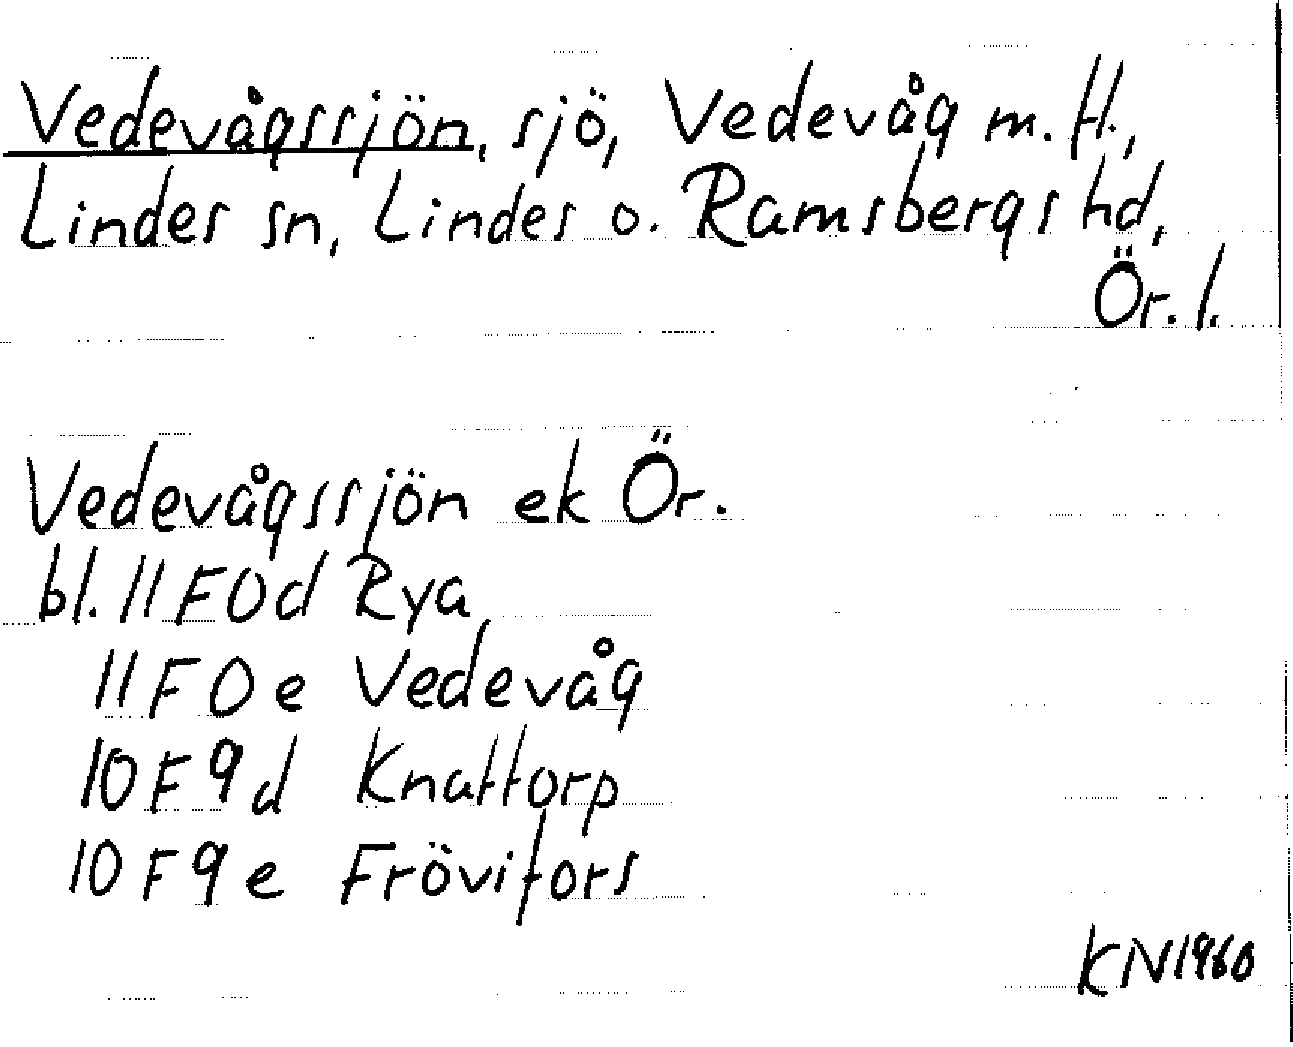 Vedevågssjön, sjö, Vedevåg m.fl.,
Lindes sn, Lindes o. Ramsbergs hd,
Ör. l.
Vedevågssjön ek Ör.
bl. 11F0d Rya
11F0e Vedevåg
10F9d Knattorp
10F9e Frövifors
KN1960